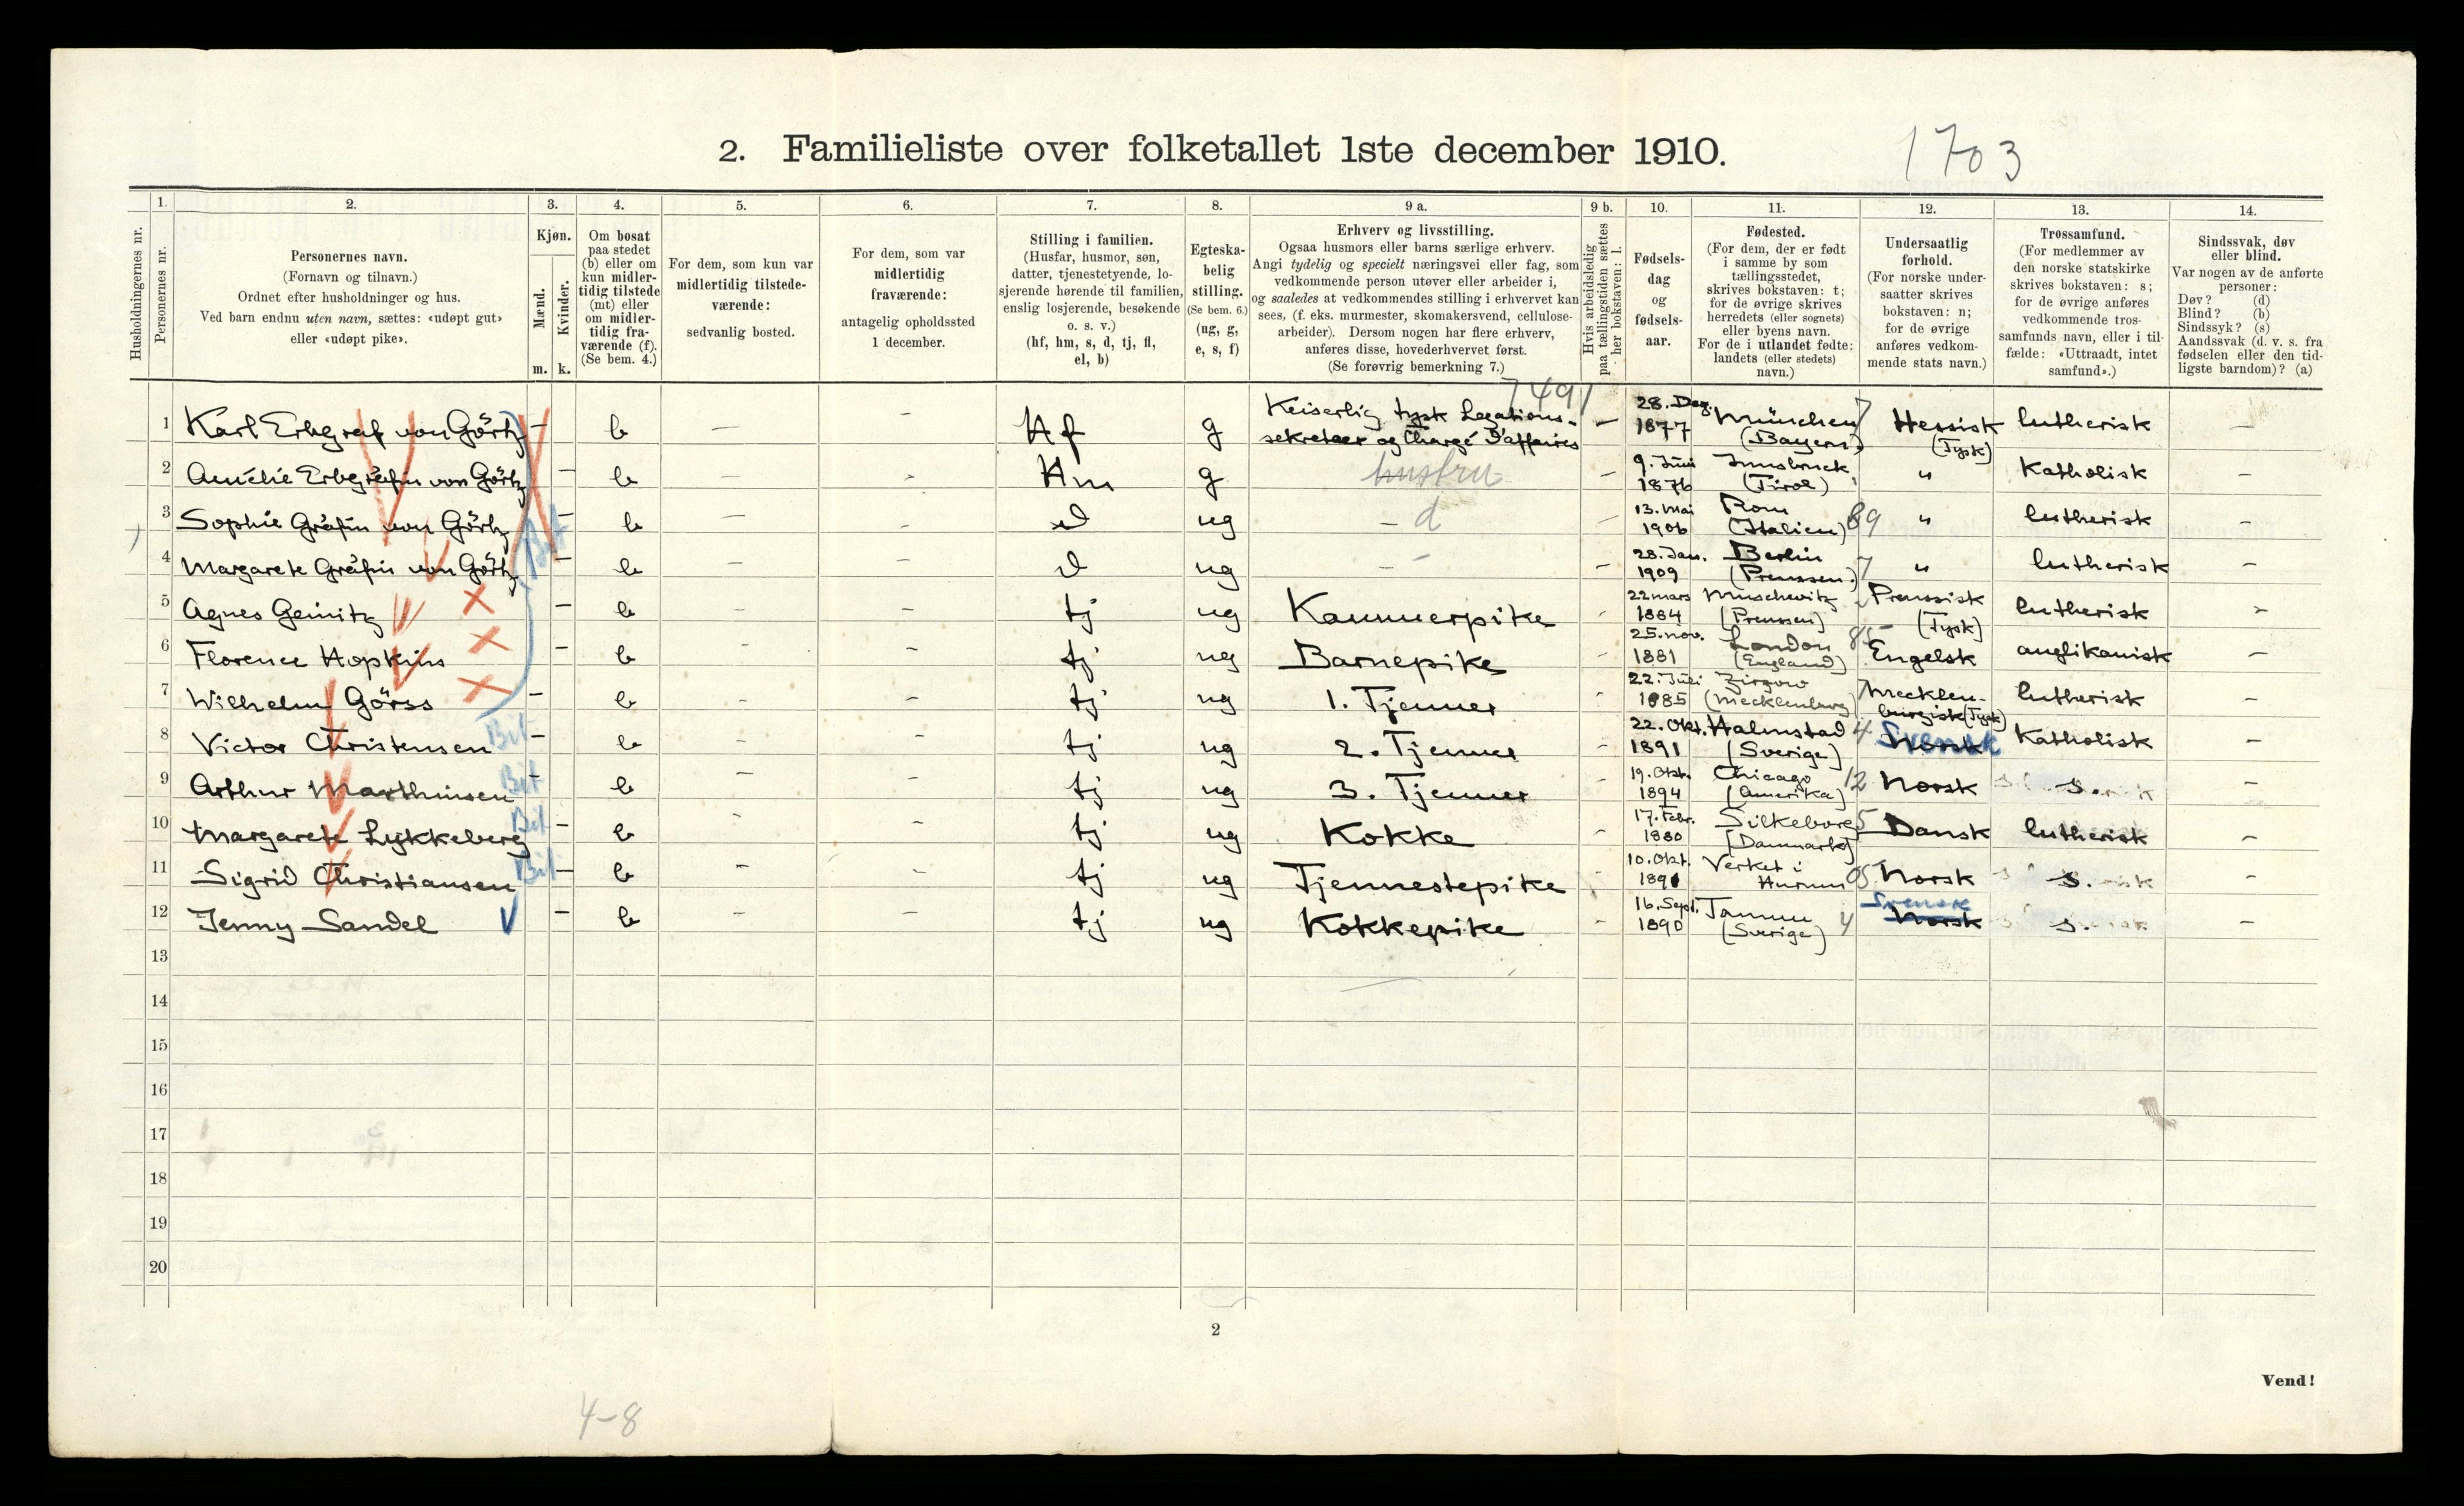 2. Familieliste over folketallet 1ste december 1910.
1703
1. 2. 3. 4. 5. 6. 7. 8. 9 a. 9 b. 10. 11. 12. 13. 14.
Husholdningernes nr.
Personernes nr.
Personernes navn.
(Fornavn og tilnavn.)
Ordnet efter husholdninger og hus.
Ved barn endnu uten navn, sættes: «udøpt gut»
eller «udøpt pike».
Kjøn.
Mænd.
Kvinder.
m. k.
Om bosat
paa stedet
(b) eller om
kun midler-
tidig tilstede
(mt) eller
om midler-
tidig fra-
værende (f).
(Se bem. 4.)
For dem, som kun var
midlertidig tilstede-
værende:
sedvanlig bosted.
For dem, som var
midlertidig
fraværende:
antagelig opholdssted
1 december.
Stilling i familien.
(Husfar, husmor, søn,
datter, tjenestetyende, lo-
sjerende hørende til familien,
enslig losjerende, besøkende
o. s. v.)
(hf, hm, s, d, tj, fl,
el, b)
Egteska-
belig
stilling.
(Se bem. 6.)
(ug, g,
e, s, f)
Erhverv og livsstilling.
Ogsaa husmors eller barns særlige erhverv.
Angi tydelig og specielt næringsvei eller fag, som
vedkommende person utøver eller arbeider i,
og saaledes at vedkommendes stilling i erhvervet kan
sees, (f. eks. murmester, skomakersvend, cellulose-
arbeider). Dersom nogen har flere erhverv,
anføres disse, hovederhvervet først.
(Se forøvrig bemerkning 7.)
Hvis arbeidsledig
paa tællingstiden sættes
her bokstaven: l.
Fødsels-
dag
og
fødsels-
aar.
Fødested.
(For dem, der er født
i samme by som
tællingsstedet,
skrives bokstaven: t;
for de øvrige skrives
herredets (eller sognets)
eller byens navn.
For de i utlandet fødte:
landets (eller stedets)
navn.)
Undersaatlig
forhold.
(For norske under-
saatter skrives
bokstaven: n;
for de øvrige
anføres vedkom-
mende stats navn.)
Trossamfund.
(For medlemmer av
den norske statskirke
skrives bokstaven: s;
for de øvrige anføres
vedkommende tros-
samfunds navn, eller i til-
fælde: «Uttraadt, intet
samfund».)
Sindssvak, døv
eller blind.
Var nogen av de anførte
personer:
Døv? (d)
Blind? (b)
Sindssyk? (s)
Aandssvak (d. v. s. fra
fødselen eller den tid-
ligste barndom)? (a)
7491
1 Karl Erbgraf von Görtz – b – – Hf g Keiserlig tysk Legations-sekretær og Chargé D'affaires – 28. Dez. 1877 München (Bayern) 7 Hessisk (Tysk) lutherisk –
2 Amélie Erbgräfin von Görtz – b – – Hm g hustru – 9. Juni 1876 Innsbruck (Tirol) " Katholisk –
3 Sophie Gräfin von Görtz – b – – d ug – d – 13. Mai 1906 Rom (Italien) 89 " lutherisk –
4 Margarete Gräfin von Görtz – b – – d ug – – 28. Jan. 1909 Berlin (Preussen) 7 " lutherisk –
5 Agnes Geinitz – b – – tj ug Kammerpike – 22 mars 1884 Muschevitz (Preussen) Preussisk (Tysk) lutherisk –
6 Florence Hopkins – b – – tj ug Barnepike – 25. nov. 1881 London (England) 85 Engelsk anglikanisk –
7 Wilhelm Görss – b – – tj ug 1. Tjenner – 22. Juli 1885 Zirzow (Mecklenburg) 7 Mecklen-burgisk (Tysk) lutherisk –
8 Victor Christensen Bit – b – – tj ug 2. Tjenner – 22. Okt. 1891 Halmstad (Sverige) 4 Norsk Svensk Katholisk –
9 Arthur Marthinsen Bit – b – – tj ug 3. Tjenner – 19. Okt. 1894 Chicago (Amerika) 12 Norsk s. –
10 Margarete Lykkeberg Bit – b – – tj ug Kokke – 17. Febr. 1880 Silkeborg (Danmark) 5 Dansk lutherisk –
11 Sigrid Christiansen Bit – b – – tj ug Tjennestepike – 10. Okt. 1891 Verket i Hurum 05 Norsk s. –
12 Jenny Sandel – b – – tj ug Kokkepike – 16. Sept. 1890 Tanum (Sverige) 4 Norsk Svensk s. –
13
14
15
16
17
18
19
20
2
Vend!
4-8